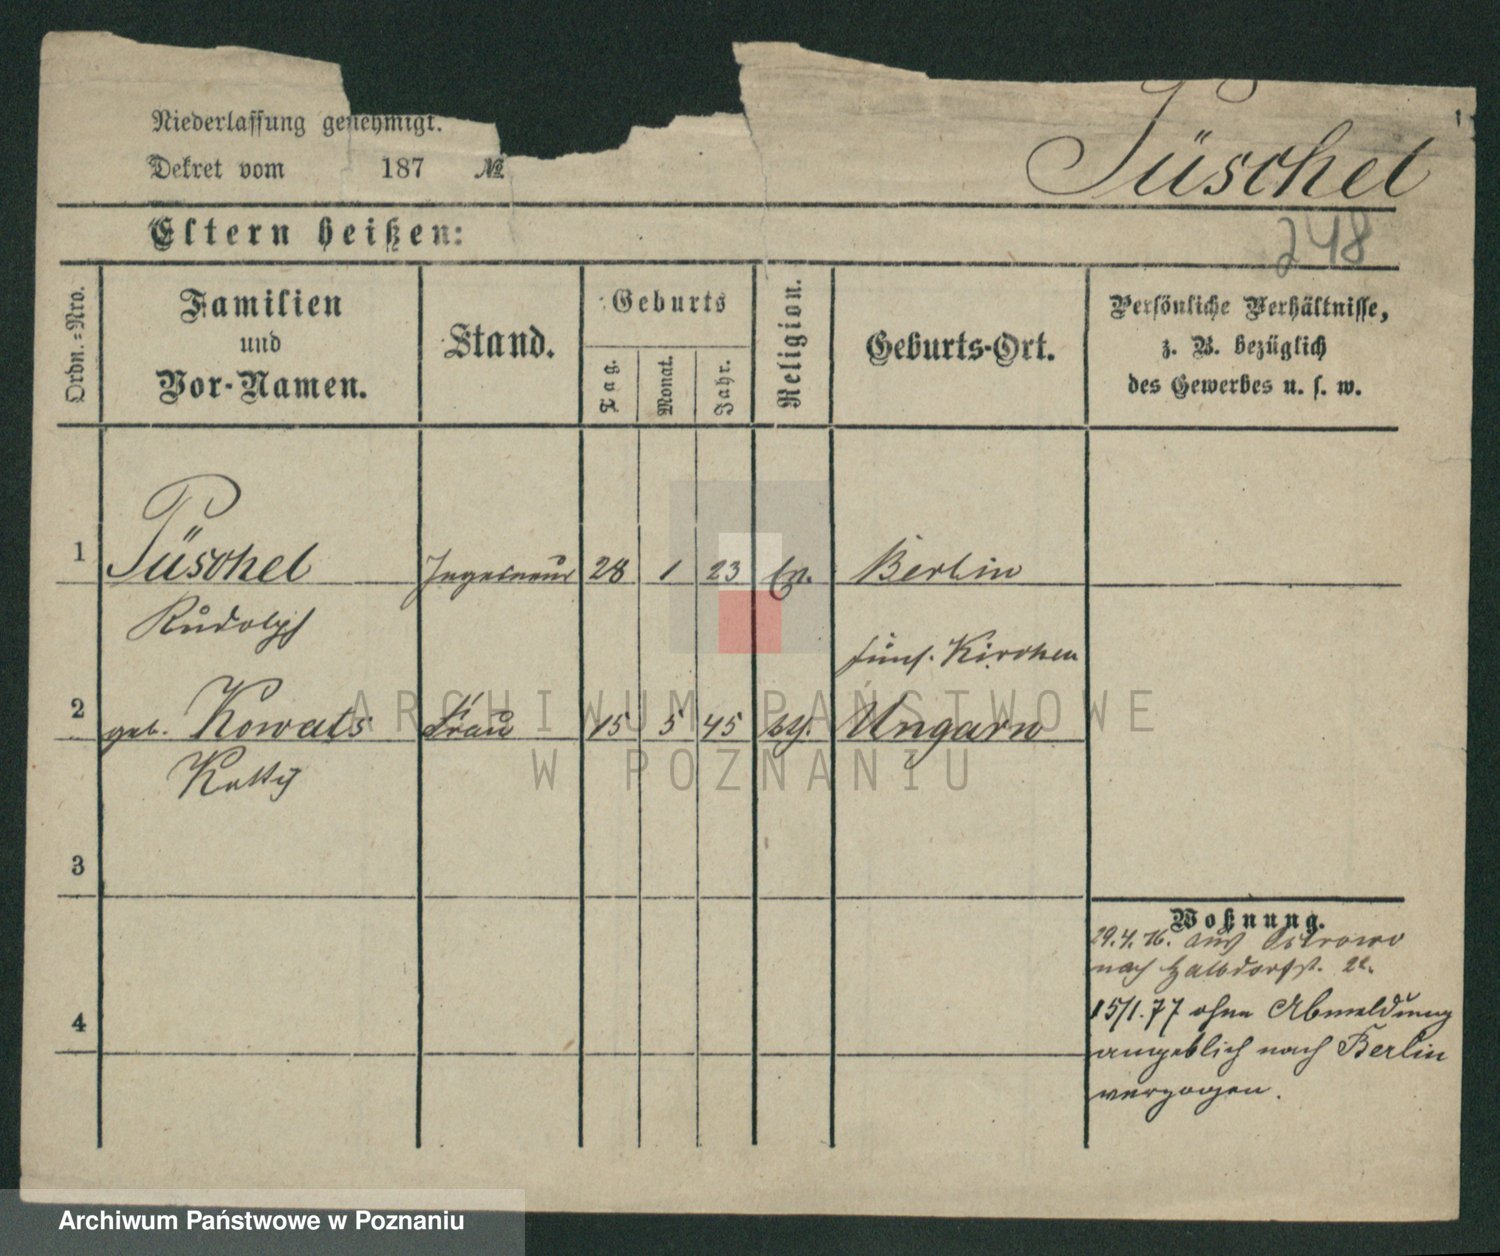 Niederlassung genehmigt.
Dekret vom 187 №
Püschel
248
Eltern heißen:
Ordn.=Nro.
Familien
und
Vor-Namen.
Stand.
Geburts
Tag.
Monat.
Jahr.
Religion.
Geburts-Ort.
Persönliche Verhältnisse,
z. B. bezüglich
des Gewerbes u. s. w.
1 Püschel Ingenieur 28 1 23 Berlin
Rudolph
fünf. Kirchen
2 geb. Kowats Frau 15 5 45 Ungarn
Katty
3
Wohnung.
29.4.76. aus Ostrowo
nach Halbdorfst. 22.
4
15/1.77 ohne Abmeldung
angeblich nach Berlin
verzogen.
ARCHIWUM PAŃSTWOWE
W POZNANIU
Archiwum Państwowe w Poznaniu